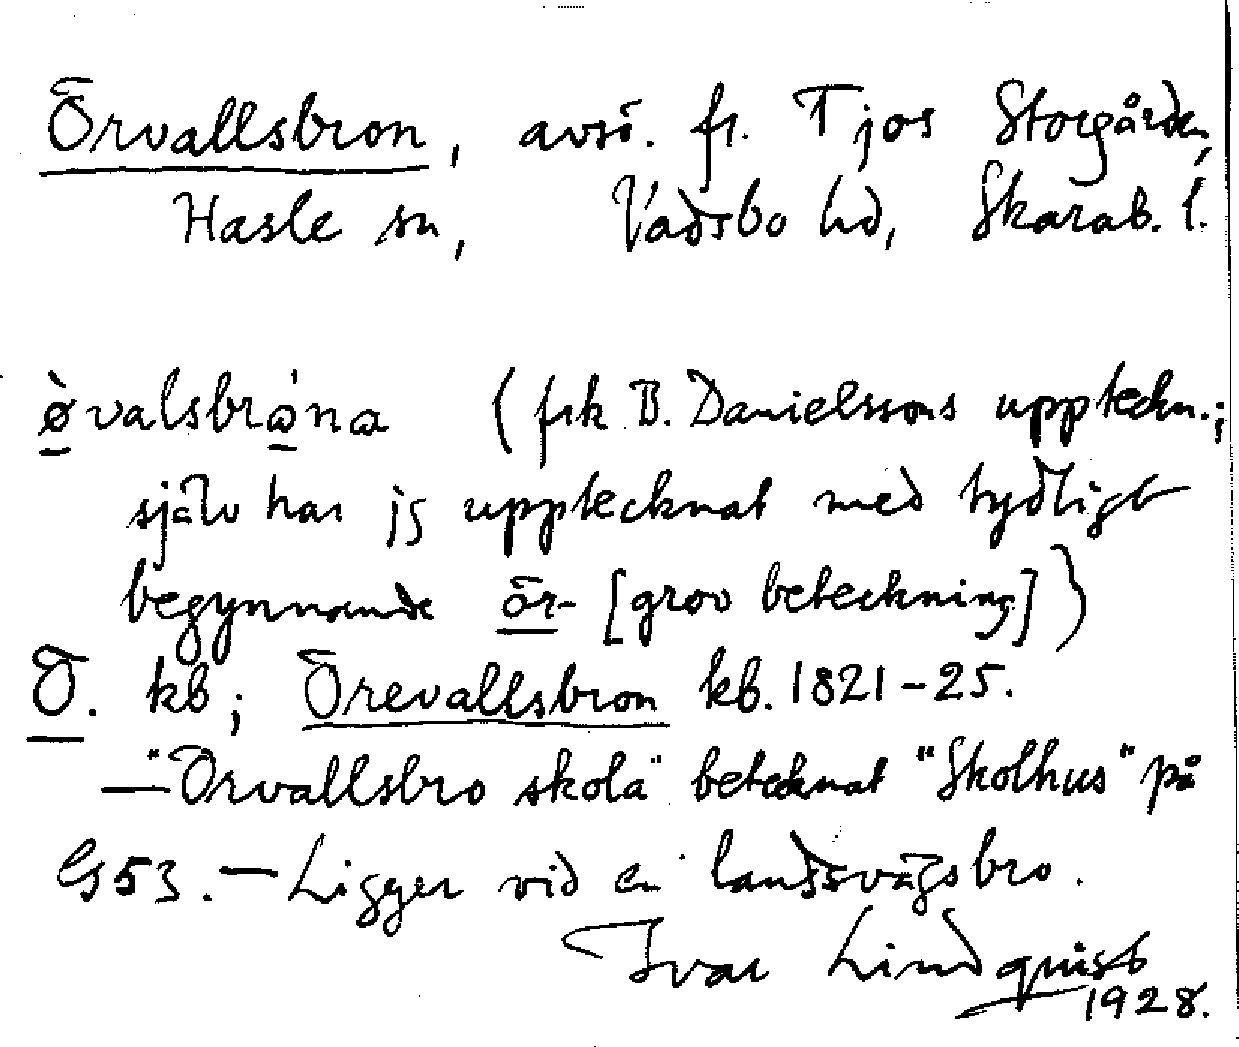 Örvallsbron, avsö. fr. Tjos Storgården,
Hasle sn, Vadsbo hd, Skarab. l.
ø̀valsbrǿna (frk B. Danielssons uppteckn.;
själv har jg upptecknat med tydligt
begynnande ör- [grov beteckning])
Ö. kb; Örevallsbron kb. 1821-25.
— "Örvallsbro skola" betecknat "Skolhus" på
G53. — Ligger vid en landsvägsbro.
Ivar Lindquist
1928.